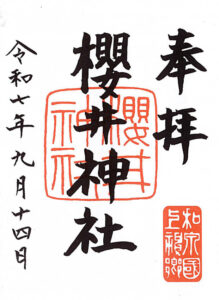 奉拝
櫻井神社
櫻井神社
和泉國上神郷
令和七年九月十四日